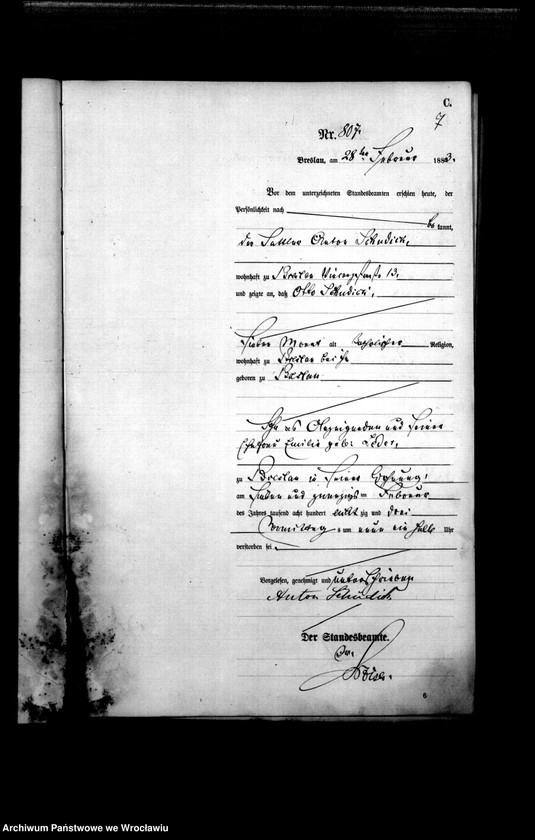 C.
7
Nr. 807.
Breslau, am 28ten Februar 1883.
Vor dem unterzeichneten Standesbeamten erschien heute, der
Persönlichkeit nach
bekannt,
der Sattler Anton Schudick,
wohnhaft zu Breslau 13,
und zeigte an, daß Otto Schudick,
sieben Monat alt katholischer Religion,
wohnhaft zu Breslau bei ihm
geboren zu Breslau
Sohn des Anzeigenden und seiner
Ehefrau Emilie geb:
zu Breslau in seiner Wohnung,
am sieben und zwanzigsten Februar
des Jahres tausend acht hundert achtzig und drei
Vormittag um neun ein halb Uhr
verstorben sei.
Vorgelesen, genehmigt und unterschrieben
Anton Schudick
Der Standesbeamte.
6
Archiwum Państwowe we Wrocławiu